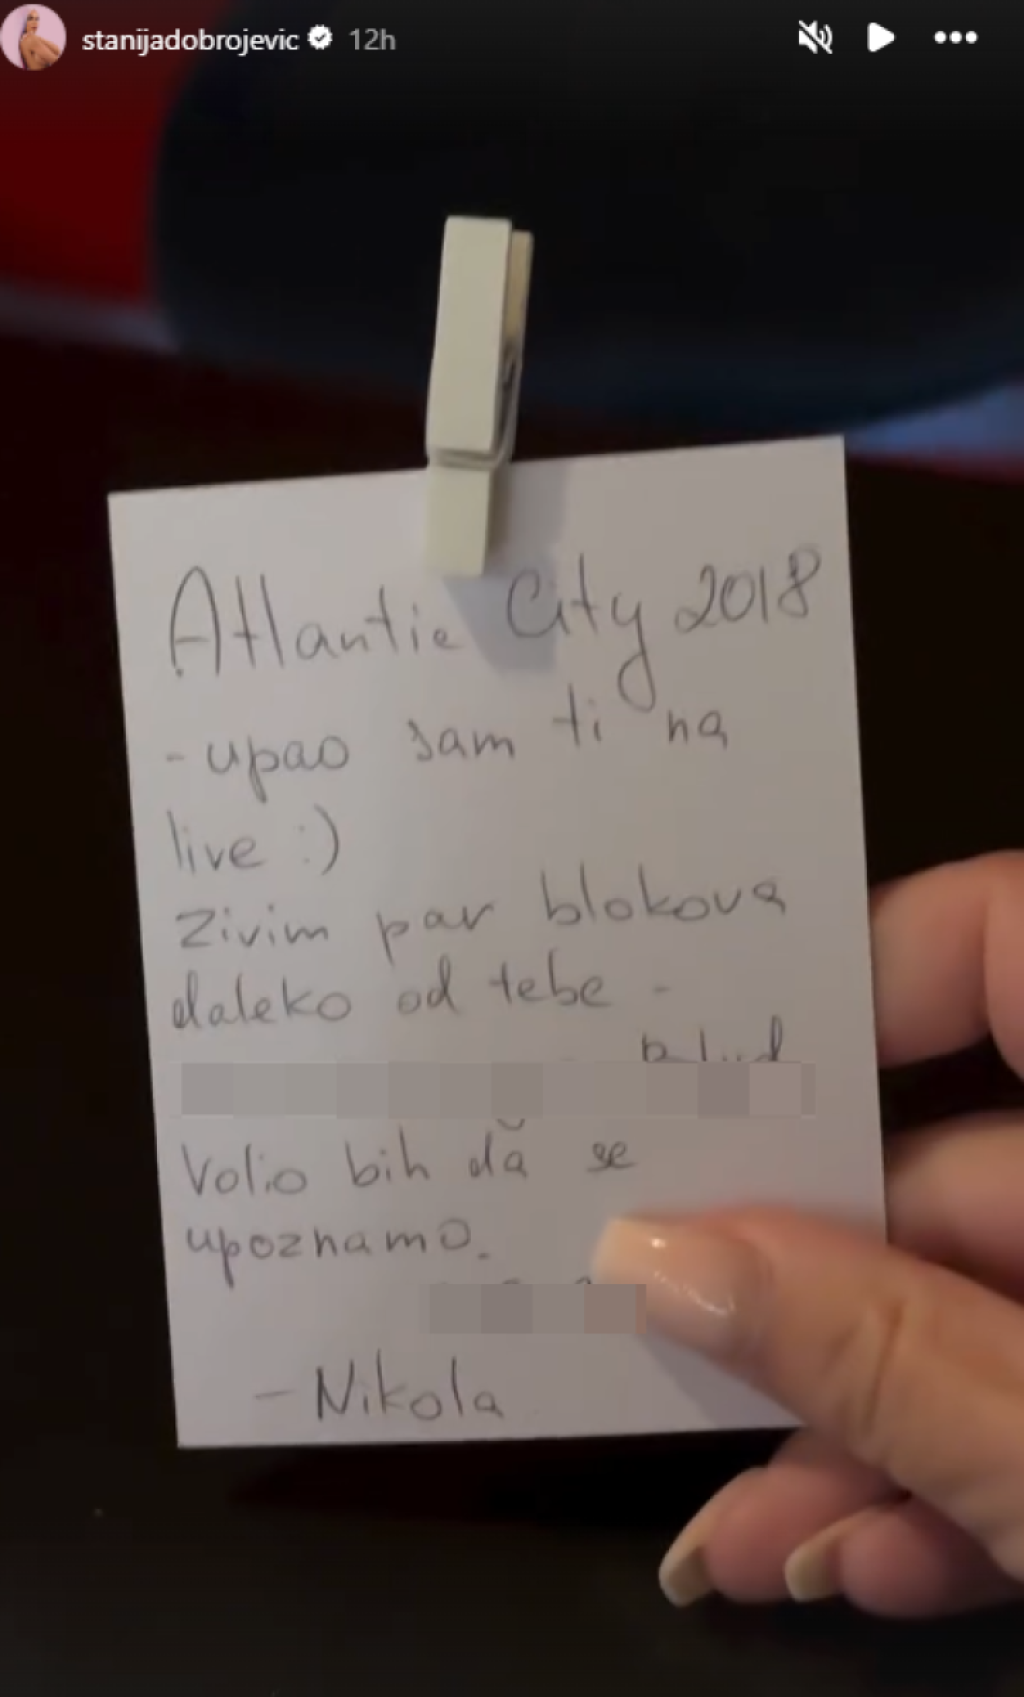 stanijadobrojevic 12h
Atlantic City 2018
- upao sam ti na
live :)
Zivim par blokova
daleko od tebe -
Volio bih da se
upoznamo.
- Nikola